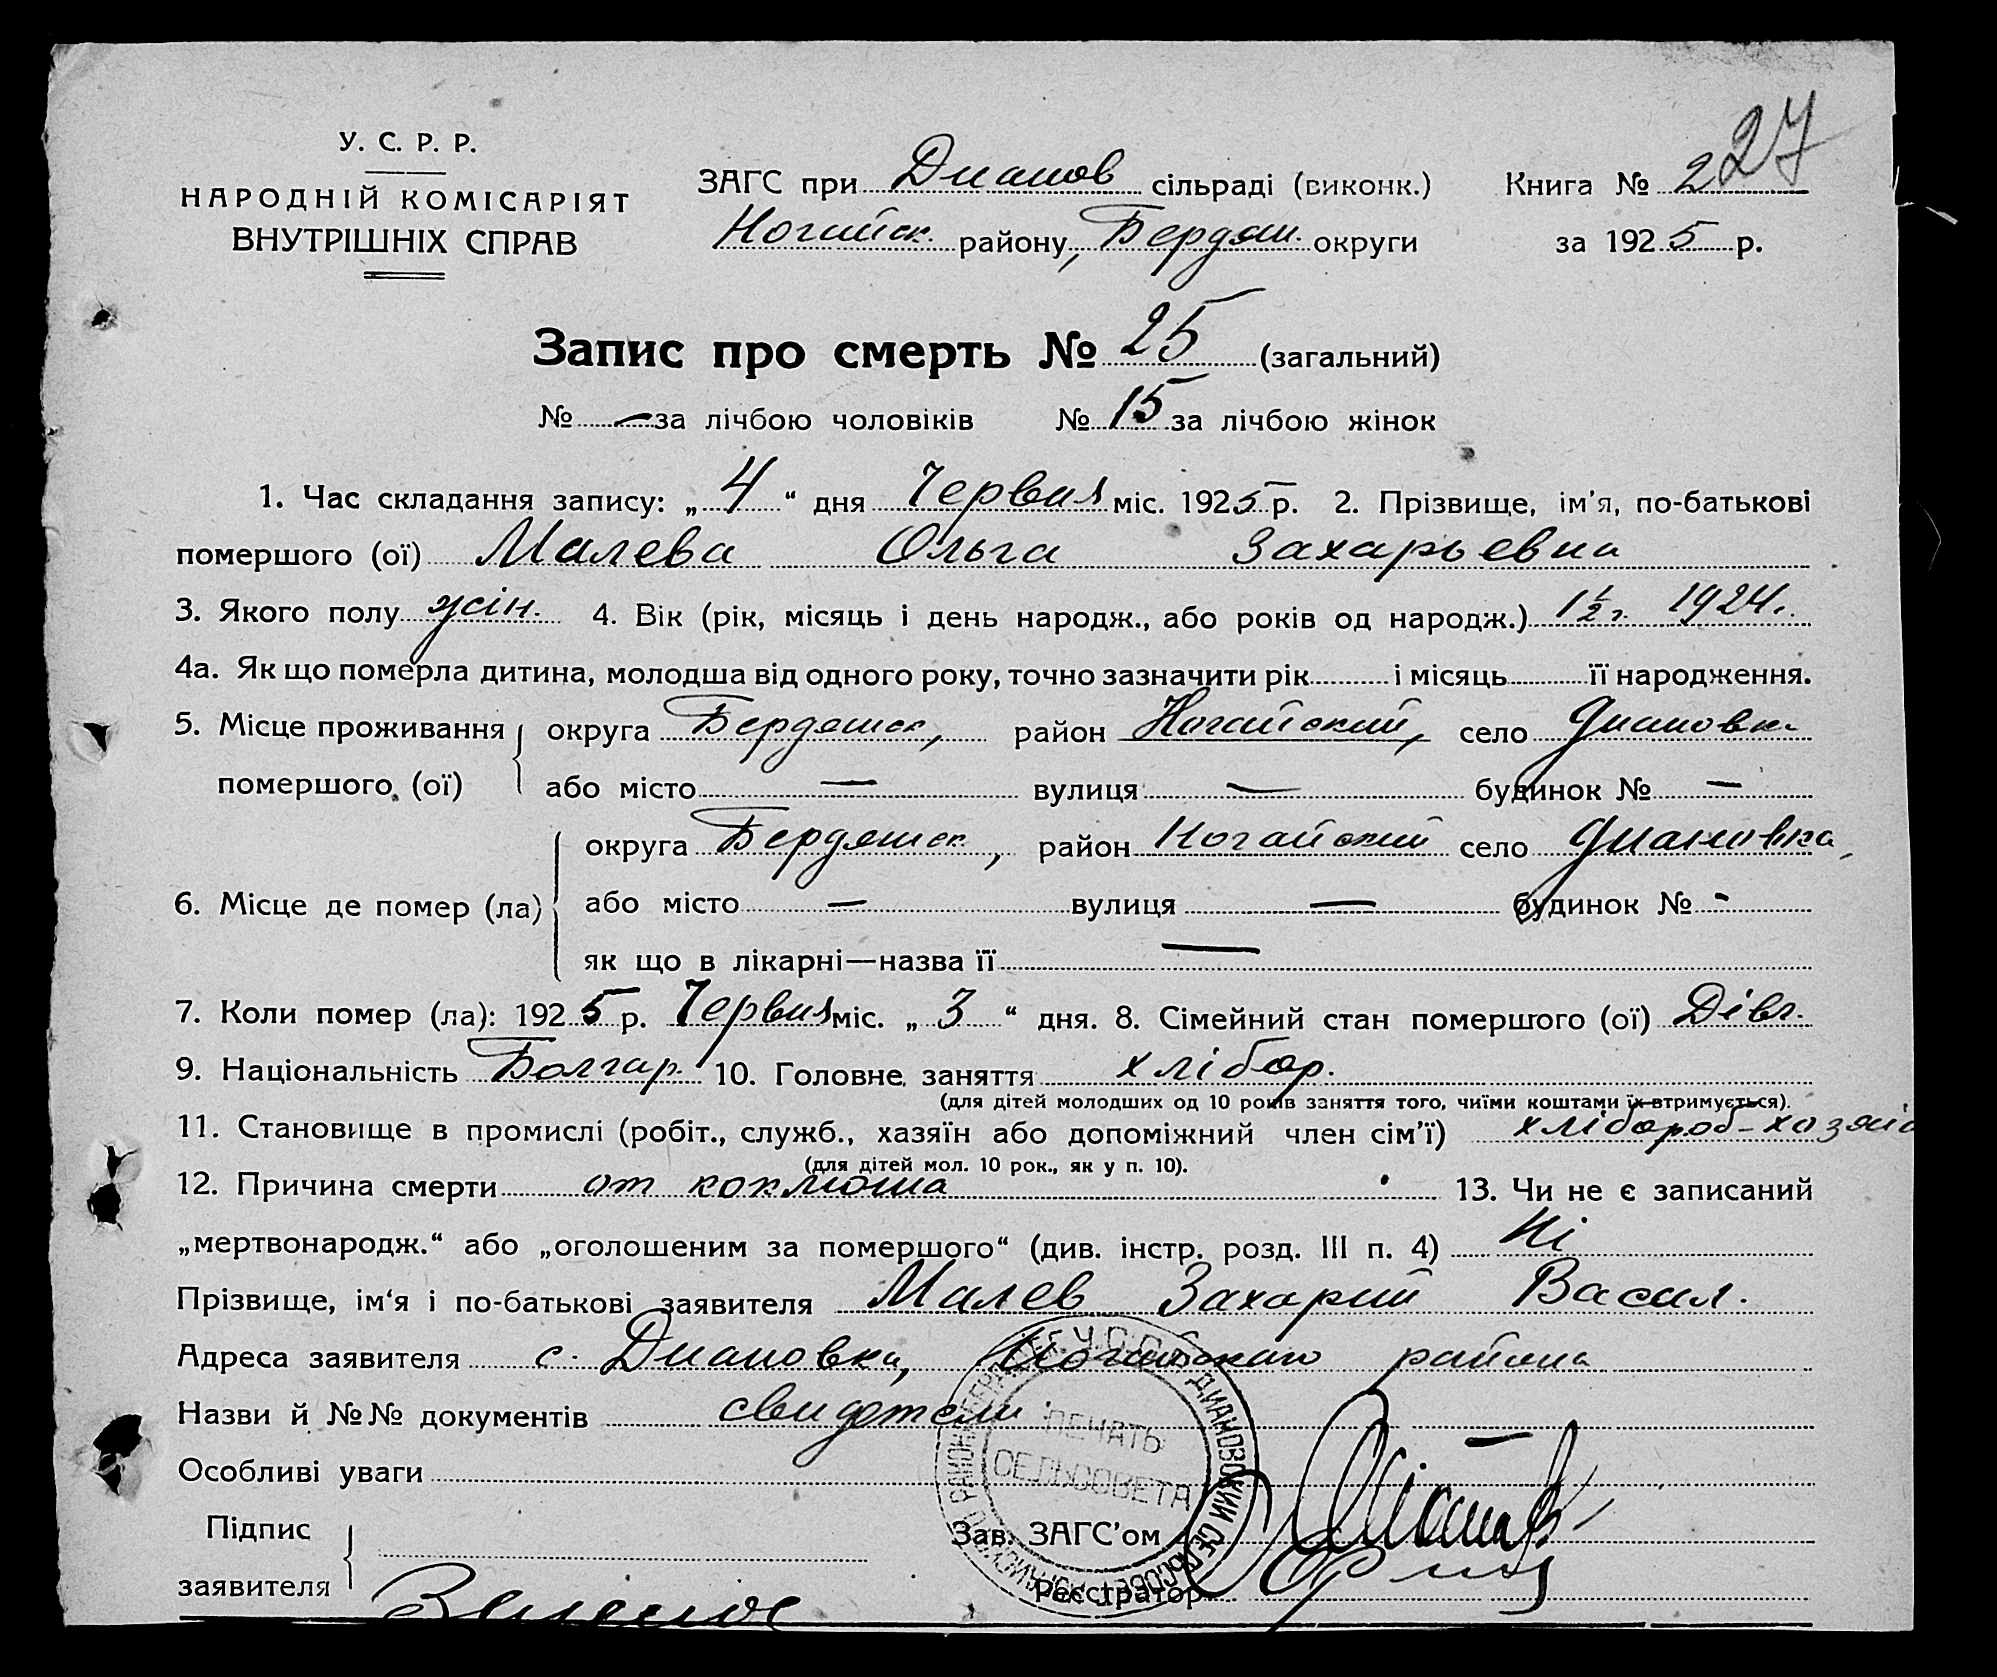 27
У. С. Р. Р.
НАРОДНІЙ КОМІСАРІЯТ
ВНУТРІШНІХ СПРАВ
ЗАГС при Дианов сільраді (виконк.) Книга № 2
Ногайск. району, Бердян. округи за 1925 р.
Запис про смерть № 25 (загальний)
№ — за лічбою чоловіків № 15 за лічбою жінок
1. Час складання запису: „4“ дня Червня міс. 1925 р. 2. Прізвище, ім'я, по-батькові
помершого (ої) Малева Ольга Захарьевна
3. Якого полу жін. 4. Вік (рік, місяць і день народж., або років од народж.) 1½ г. 1924.
4а. Як що померла дитина, молодша від одного року, точно зазначити рік і місяць її народження.
5. Місце проживання округа Бердянск, район Ногайский, село Диановка
помершого (ої) або місто — вулиця — будинок № —
округа Бердянск, район Ногайский село Диановка,
6. Місце де помер (ла) або місто — вулиця — будинок № -
як що в лікарні—назва її —
7. Коли помер (ла): 1925 р. Червня міс. „3“ дня. 8. Сімейний стан помершого (ої) Дівч.
9. Національність Болгар. 10. Головне заняття хлібор.
(для дітей молодших од 10 років заняття того, чиїми коштами їх втримується).
11. Становище в промислі (робіт., служб., хазяїн або допоміжний член сім'ї) хлібороб-хозяїн
(для дітей мол. 10 рок., як у п. 10).
12. Причина смерти от коклюша 13. Чи не є записаний
„мертвонародж.“ або „оголошеним за помершого“ (див. інстр. розд. III п. 4) Ні
Прізвище, ім'я і по-батькові заявителя Малев Захарий Васил.
Адреса заявителя с. Диановка, Ногайского района
Назви й №№ документів свидотели
ПЕЧАТЬ
СЕЛЬСОВЕТА
ДИАНОВСКИЙ СЕЛЬСОВЕТ
Особливі уваги
Підпис
Зав. ЗАГС'ом
заявителя
Реєстратор